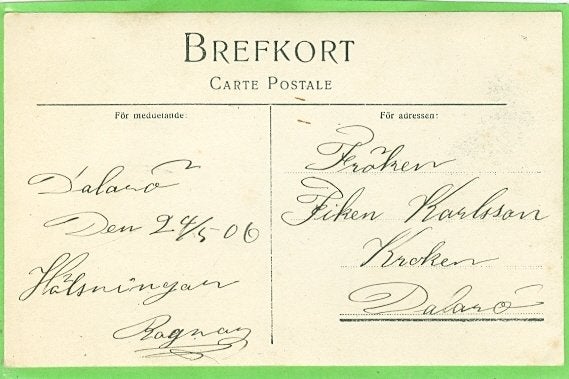 BREFKORT
CARTE POSTALE
För meddelande:
Dalarö
Den 24/5 06
Hälsningar
Ragnar
För adressen:
Fröken
Fiken Karlsson
Kroken
Dalarö